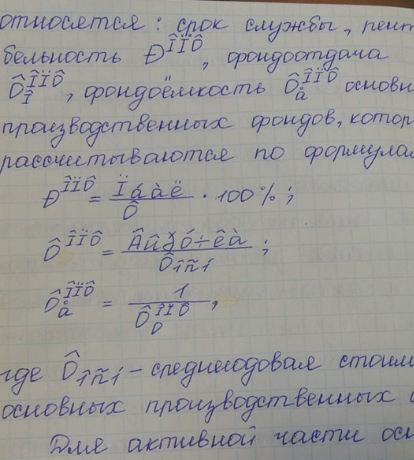 относятся: срок службы, рент
бельность Ð^ÎÏÔ, фондоотдача
Ô_Î^ÎÏÔ, фондоёмкость Ô_å^ÎÏÔ основн
производственных фондов, котор
рассчитываются по формулам
Ð^ÎÏÔ = Ïáàë / Ô · 100%;
Ô^ÎÏÔ = Âûðó÷êà / Ôîñí;
Ô_å^ÎÏÔ = 1 / Ô_Ð^ÎÏÔ,
где Ôîñí – среднегодовая стоим
основных производственных
Для активной части осн